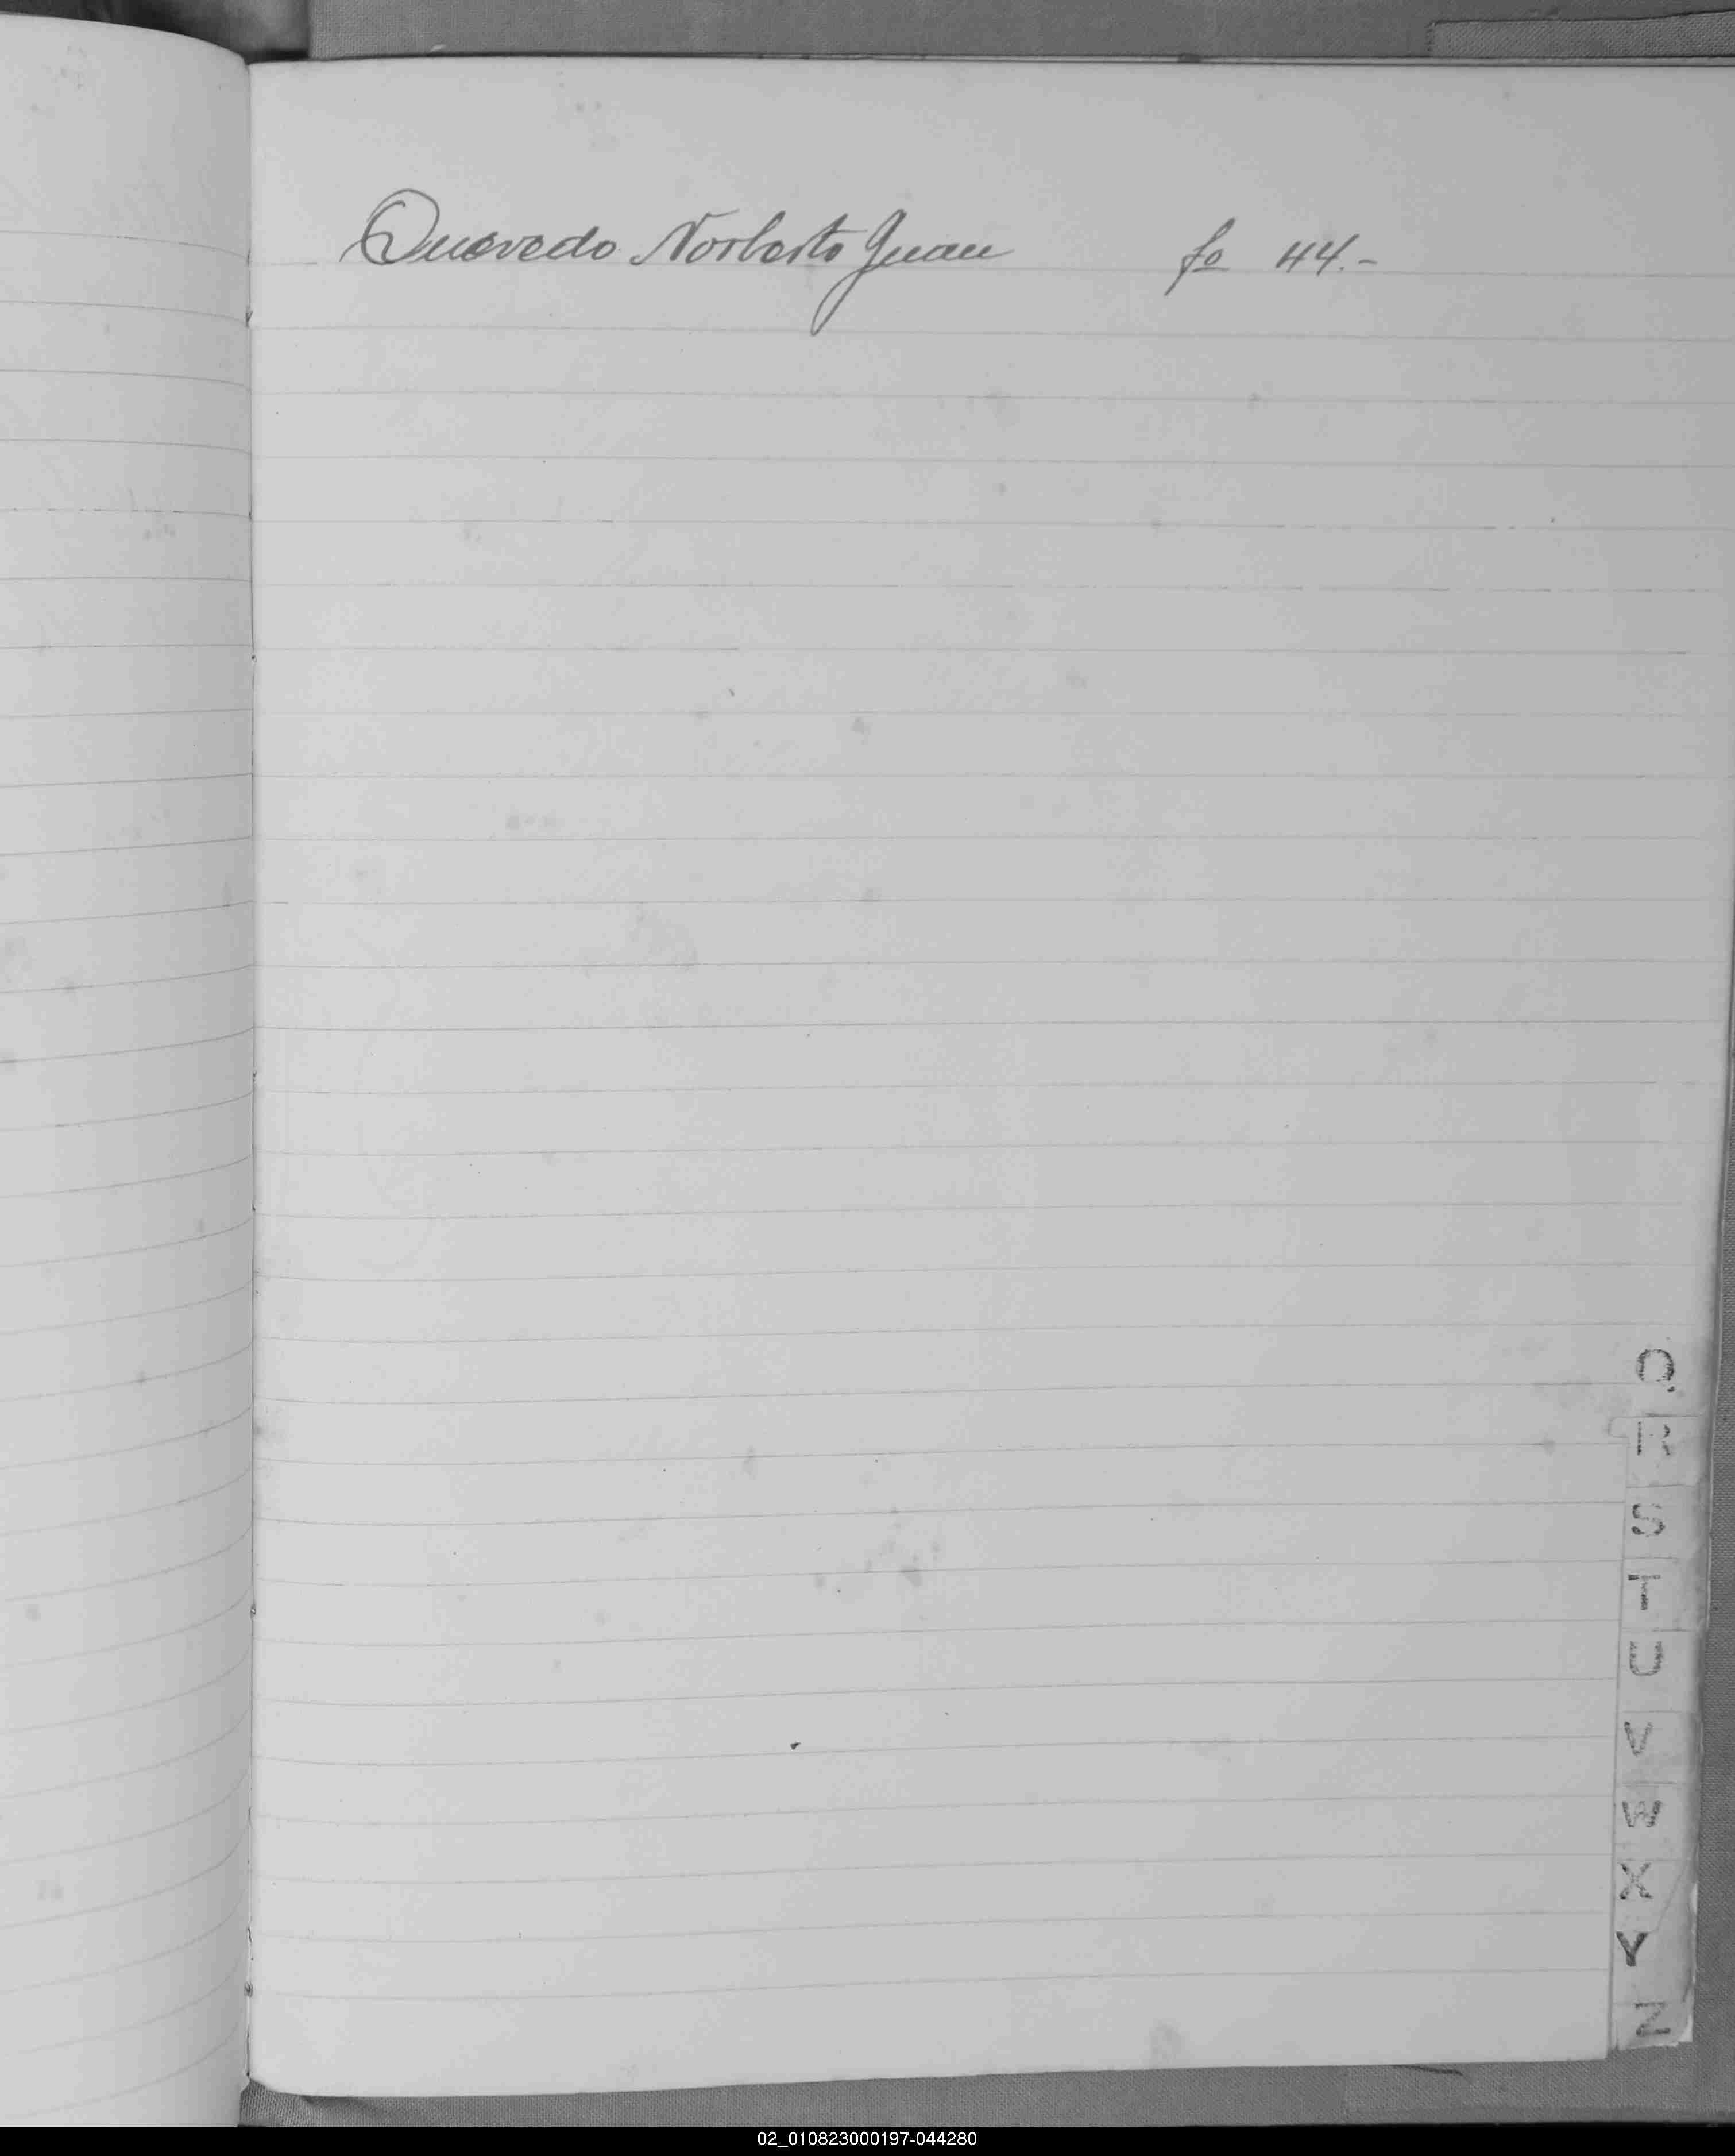 Quevedo Norberto Juan fo 44.-
Q
R
S
T
U
V
W
X
Y
Z
02_010823000197-044280